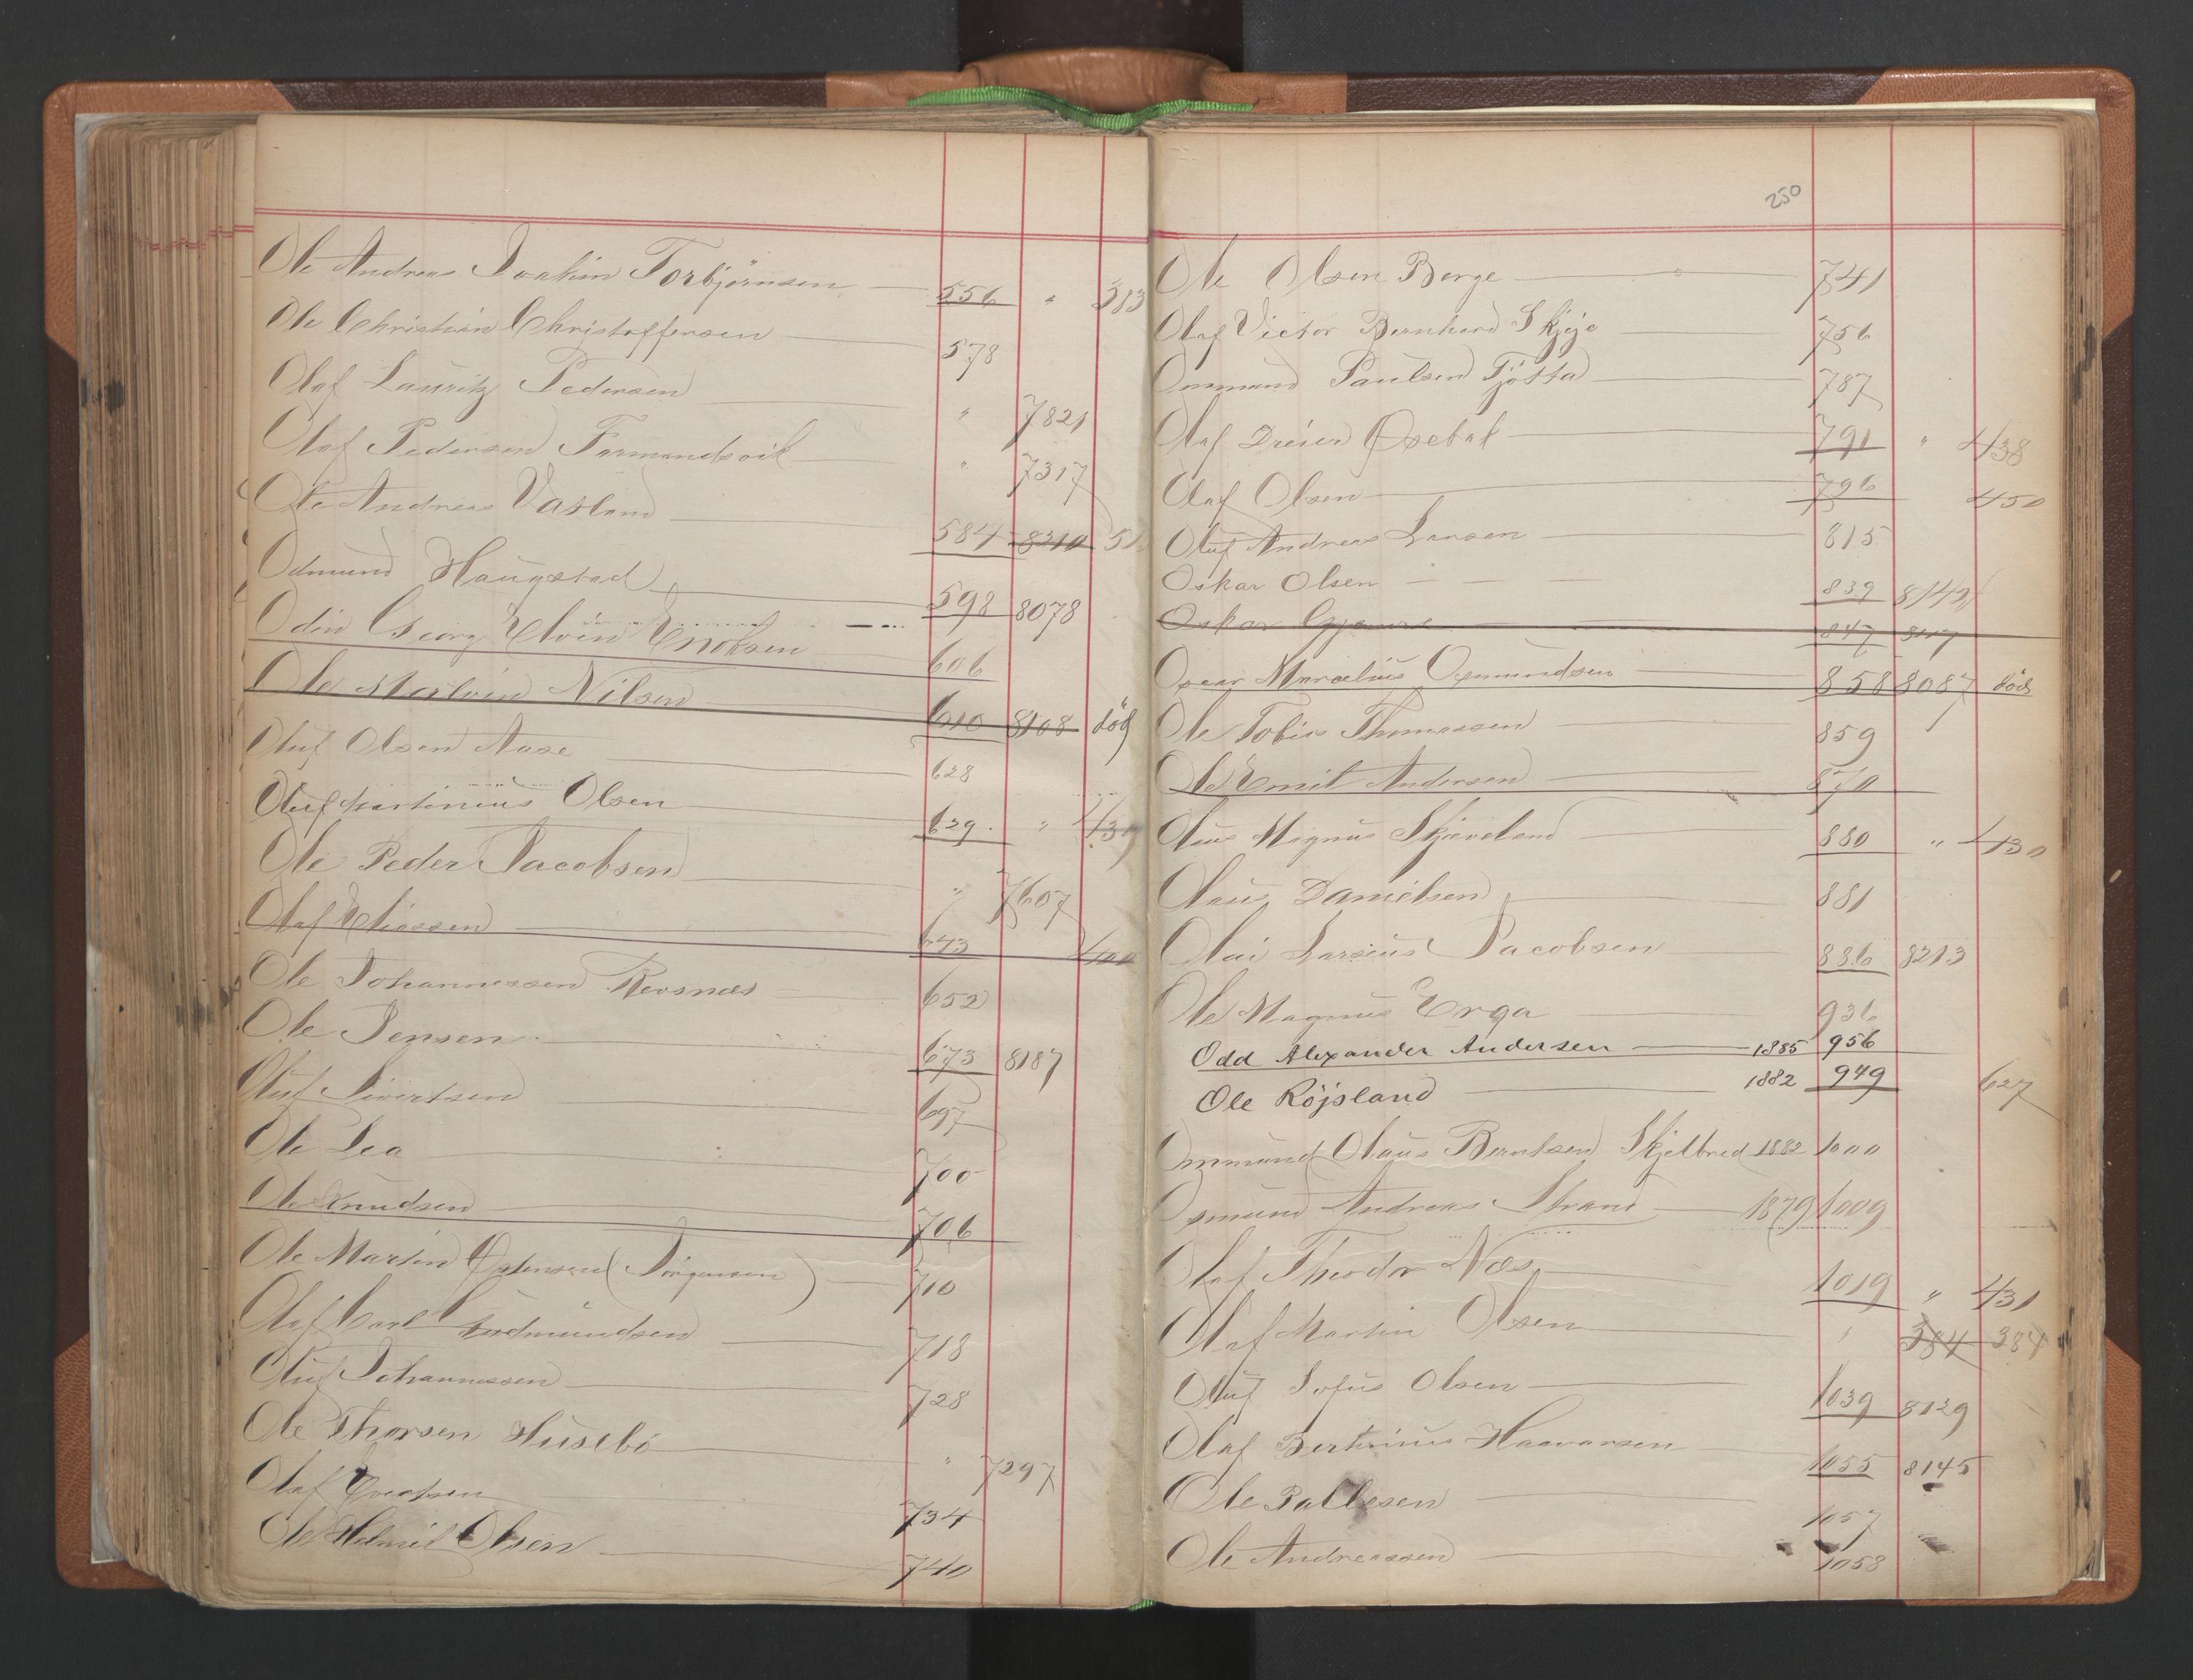 Ole Andreas Joakim Torbjörnsen 556 " 313
Ole Christian Christoffersen 578
Olaf Lauritz Pedersen " 7821
Olaf Pedersen Farmandsvik " 7317
Ole Andreas Vasland 584 8210
Odmund Haugstad 598 8078
Odin Georg Elvin Enoksen 606
Ole Martin Nilsen 610 8108 död
Oluf Olsen Aase 628
Oluf Martinius Olsen 629 "
Ole Peder Jacobsen " 7607
Olaf Eliassen 643 400
Ole Johannessen Revsnæs 652
Ole Jensen 673 8187
Oluf Sivertsen 697
Ole Lea 700
Ole Knudsen 706
Ole Martin Östensen (Jörgensen) 710
Olaf Carl Gudmundsen 718
Oluf Johannessen 728
Ole Thorsen Husebö " 7297
Olaf 734
Ole Helmik Olsen 740
250
Ole Olsen Berge 741
Olaf Victor Bernhard Skjeje 756
Ommund Paulsen Tjötta 787
Olaf Dreier Öxebal 791 " 438
Olaf Olsen 796 450
Oluf Andreas Larsen 815
Oskar Olsen 839 8142
Oskar 847 8117
Oscar Marcelius Osmundsen 858 8087 död
Ole Tobias Thomassen 859
Ole Emil Andersen 870
Olaus Magnus Skjæveland 880 " 430
Olaus Danielsen 881
Olai Larsius Jacobsen 886 8213
Ole Magnus Erga 936
Odd Alexander Andersen 1885 956
Ole Röjsland 1882 949 627
Ommund Olaus Berntsen Skjelbred 1882 1000
Osmund Andreas Strand 1879 1009
Olaf Theodor Næs 1019 " 431
Olaf Martin Olsen " 384 384
Oluf Sofus Olsen 1039 8129
Olaf Bertinius Haavarsen 1055 8145
Ole Pallesen 1057
Ole Andreassen 1058